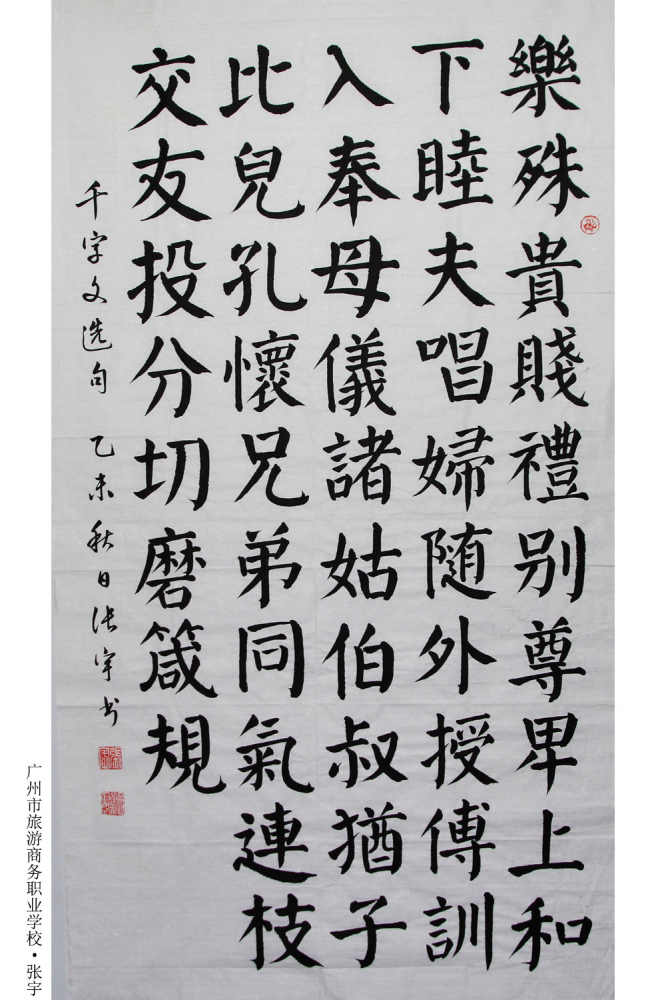 樂殊貴賤禮别尊卑上和
下睦夫唱婦随外授傅訓
入奉母儀諸姑伯叔猶子
比兒孔懷兄弟同氣連枝
交友投分切磨箴規
千字文选句 乙未秋日张宇书
广州市旅游商务职业学校·张宇